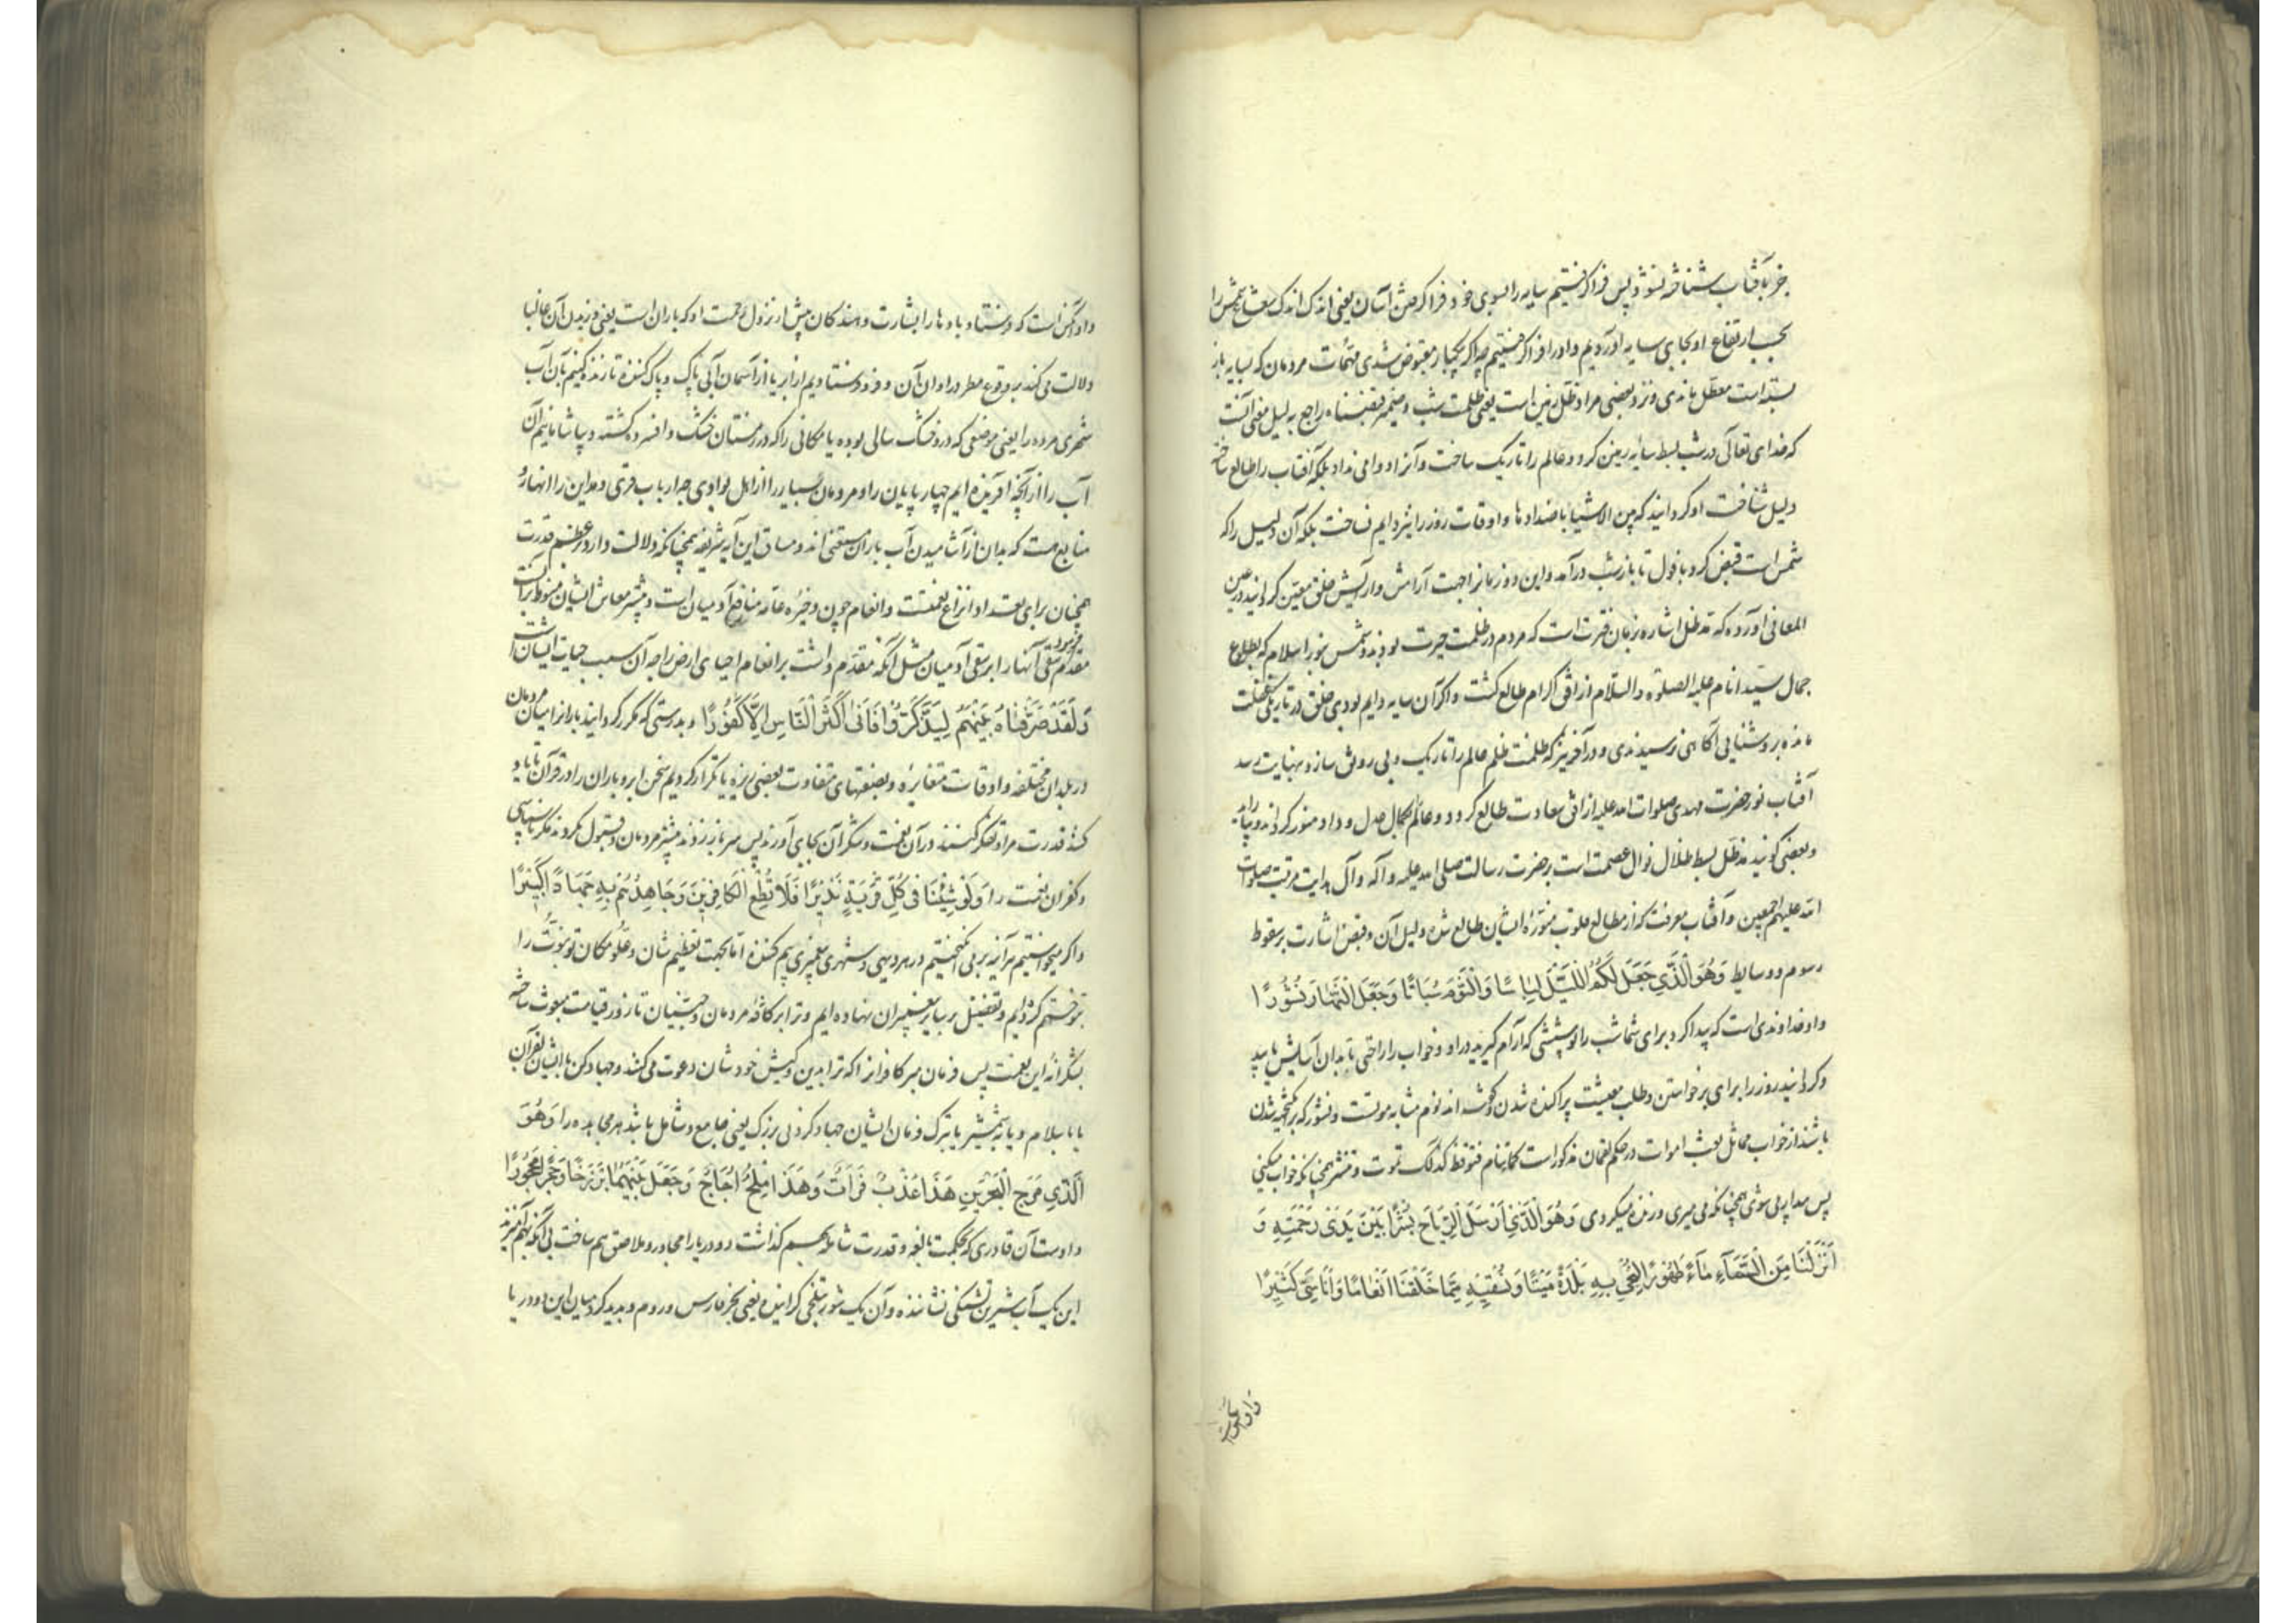 جز بآفتاب شناخته نشود پس فرا گرفتیم سایه را بسوی خود فرا گرفتن آسان یعنی اندک اندک شعاع شمس را
بحسب ارتفاع او بجای سایه آوردیم و او را فرا گرفتیم چه اگر یکبار مقبوض شدی مهمات مردمان که بسایه باز
بسته است معطل ماندی و نزد بعضی مراد ظل زمین است یعنی ظلمت شب و ضمیر قبضناه راجع به لیل معنی آنست
که خدای تعالی در شب بسط سایه زمین کرد و عالم را تاریک ساخت و آنرا دوامی نداد بلکه آفتاب را طالع ساخته
دلیل شناخت او گردانید که من الاشیا باضدادها و اوقات روز را نیز دایم نساخت بلکه آن دلیل را که
شمس است قبض کرد بافول تا باز شب درآمد و این دو زمانرا جهت آرامش و آرایش خلق معین گردانید در عین
المعانی آورده که مد ظل اشاره بزمان فترت است که مردم در ظلمت حیرت بودند و شمس نور اسلام که بطلوع
جمال سید انام علیه الصلوة والسلام از افق اکرام طالع گشت و اگر آن سایه دایم بودی خلق در تاریکی غفلت
مانده بروشنایی آگاهی نرسیدندی و در آخر نیز که ظلمت ظلم عالم را تاریک و بی رونق سازد و بنهایت رسد
آفتاب نور حضرت مهدی صلوات الله علیه از افق سعادت طالع گردد و عالم بکمال عدل و داد منور گرداند
وبعضی گویند مد ظل بسط ظلال نوال عصمت است بر حضرت رسالت صلی الله علیه وآله وآل هدایت مرتبت صلوات
الله علیهم اجمعین و آفتاب معرفت که از مطالع قلوب منوره ایشان طالع شده دلیل آن و قبض اشارت بر سقوط
رسوم و وسایط وَهُوَ الَّذِي جَعَلَ لَكُمُ اللَّيْلَ لِبَاسًا وَالنَّوْمَ سُبَاتًا وَجَعَلَ النَّهَارَ نُشُورًا
و او خداوندی است که پیدا کرد برای شما شب را پوششی که آرام گیرید در او و خواب را راحتی تا بدان آسایش یابید
و گردانید روز را برای برخواستن و طلب معیشت پراکنده شدن و گفته اند نوم مشابه موتست و نشور که برانگیخته شدن
باشد از خواب مماثل بعث اموات در حکم لقمان مذکور است کما تنام فتوقظ کذلک تموت و تنشر همچنانکه خواب میکنی
پس بیدار می شوی همچنانکه می میری و زنده میکردی وَهُوَ الَّذِي أَرْسَلَ الرِّيَاحَ بُشْرًا بَيْنَ يَدَيْ رَحْمَتِهِ وَ
أَنْزَلْنَا مِنَ السَّمَاءِ مَاءً طَهُورًا لِنُحْيِيَ بِهِ بَلْدَةً مَيْتًا وَنُسْقِيَهِ مِمَّا خَلَقْنَا أَنْعَامًا وَأَنَاسِيَّ كَثِيرًا
و او آنکس است
و او آنکس است که فرستاد بادها را بشارت دهندگان پیش از نزول رحمت او که باران است یعنی وزیدن آن غالبا
دلالت می کند بر وقوع مطر در اوان آن و فرو فرستادیم از ابر یا از آسمان آبی پاک و پاک کننده تا زنده کنیم بآن آب
شهری مرده را یعنی موضعی که در و خشک سالی بوده یا مکانی را که در زمستان خشک و افسرده گشته و بیاشامانیم آن
آب را از آنچه آفریده ایم چهارپایان را و مردمان بسیار را از اهل بوادی چه ارباب قری و مداین را انهار و
منابع هست که بدان از آشامیدن آب باران مستغنی اند و مساق این آیه شریفه همچنانکه دلالت دارد بر عظم قدرت
همچنان برای تعداد انواع نعمتست و انعام چون ذخیره عامه منافع آدمیان است و بیشتر معاش ایشان منوط بر آنست
مقدم سقی آنها را بر سقی آدمیان مثل آنکه مقدم داشت بر انعام احیای ارض را چه آن سبب حیات ایشان است
وَلَقَدْ صَرَّفْنَاهُ بَيْنَهُمْ لِيَذَّكَّرُوا فَأَبَى أَكْثَرُ النَّاسِ إِلَّا كُفُورًا و بدرستی که مکرر گردانید بارانرا میان مردمان
در بلدان مختلفه و اوقات متغایره و بصفتهای متفاوت بعضی ریزه یا تکرار کردیم سخن ابر و باران را در قرآن تا یاد
کنند قدرت مرا و تفکر کنند در آن نعمت و شکر آن بجای آورند پس سر باز زدند بیشتر مردمان و قبول نکردند مگر ناسپاسی
و کفران نعمت را وَلَوْ شِئْنَا لَبَعَثْنَا فِي كُلِّ قَرْيَةٍ نَذِيرًا فَلَا تُطِعِ الْكَافِرِينَ وَجَاهِدْهُمْ بِهِ جِهَادًا كَبِيرًا
و اگر میخواستیم هرآینه برمی انگیختیم در هر دیهی و شهری پیغمبری بیم کننده اما بجهت تعظیم شان و علو مکان تو نبوت را
بتو ختم کردیم و تفضیل بر سایر پیغمبران نهاده ایم و ترا بر کافه مردمان و جنیان تا روز قیامت مبعوث ساخته
بشکرانه این نعمت پس فرمان مبر کافرانرا که ترا بدین و کیش خودشان دعوت می کنند و جهاد کن با ایشان بقرآن
یا باسلام و یا بشمشیر یا بترک فرمان ایشان جهاد کردنی بزرگ یعنی جامع و شامل باشد هر مجاهده را وَهُوَ
الَّذِي مَرَجَ الْبَحْرَيْنِ هَذَا عَذْبٌ فُرَاتٌ وَهَذَا مِلْحٌ أُجَاجٌ وَجَعَلَ بَيْنَهُمَا بَرْزَخًا وَحِجْرًا مَحْجُورًا
و اوست آن قادری که بحکمت بالغه و قدرت شامله بهم گذاشت دو دریا را مجاور و ملاصق هم ساخت بی آنکه بهم آمیزند
این یک آب شیرین تشنگی نشاننده و آن یک شور بتلخی گراینده یعنی بحر فارس و روم و پدید کرد میان این دو دریا